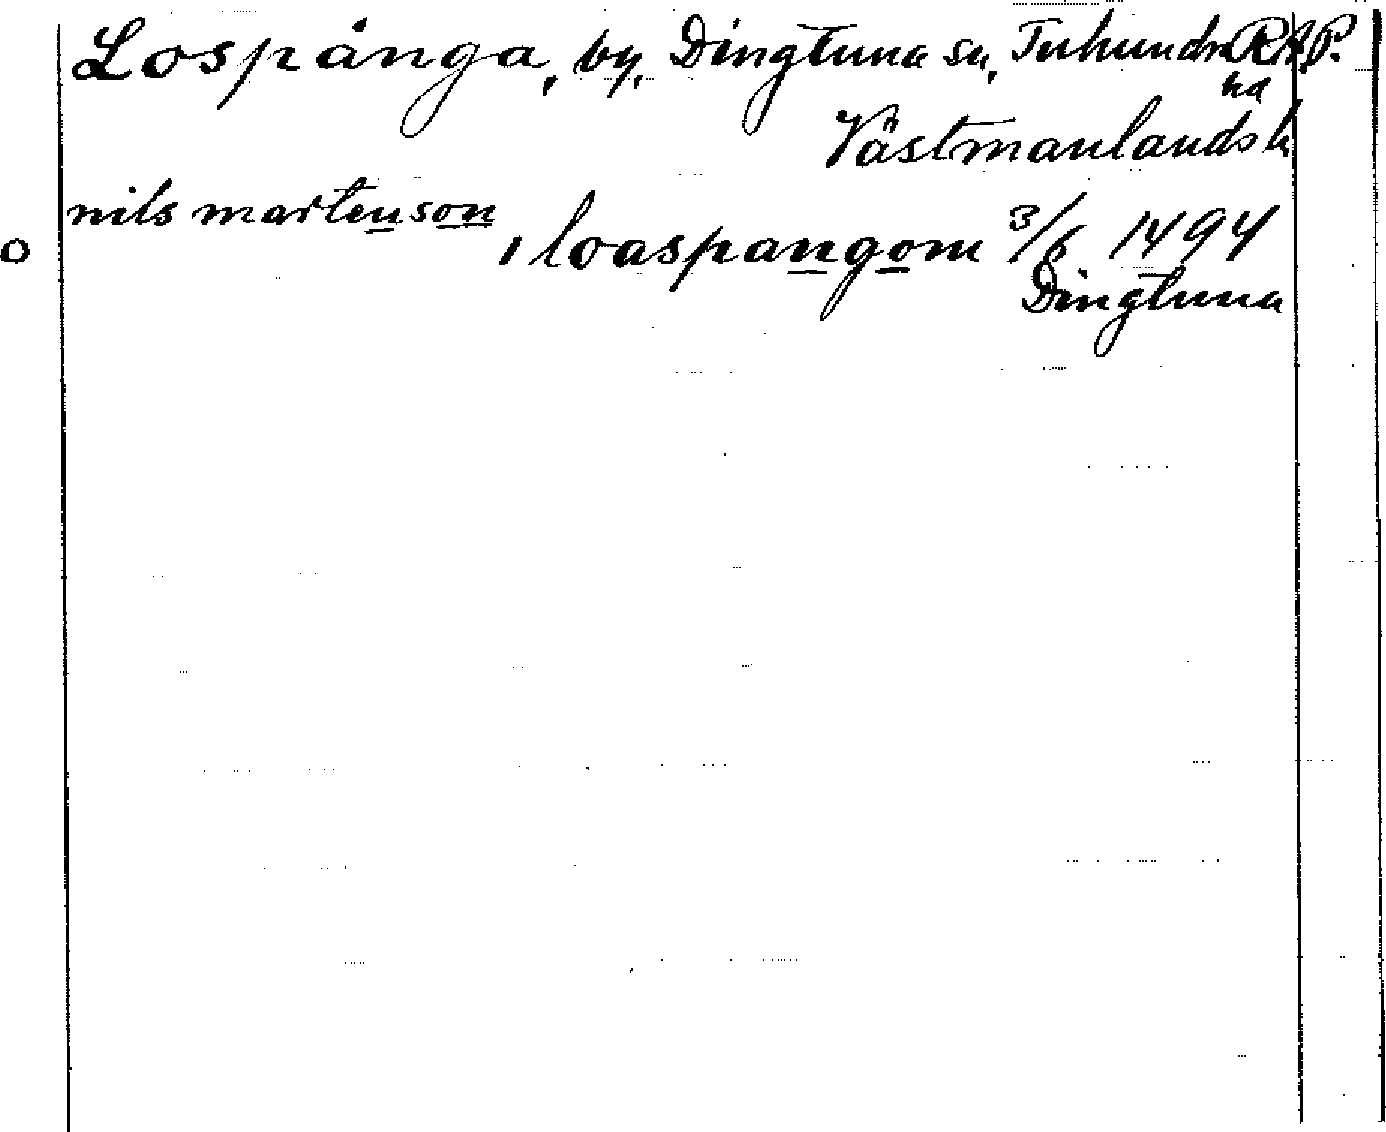 Lospånga, by, Dingtuna sn, Tuhundra R.A.P.
hd
Västmanlands l.
nils martenson
o ı loaspangom 3/6 1494
Dingtuna